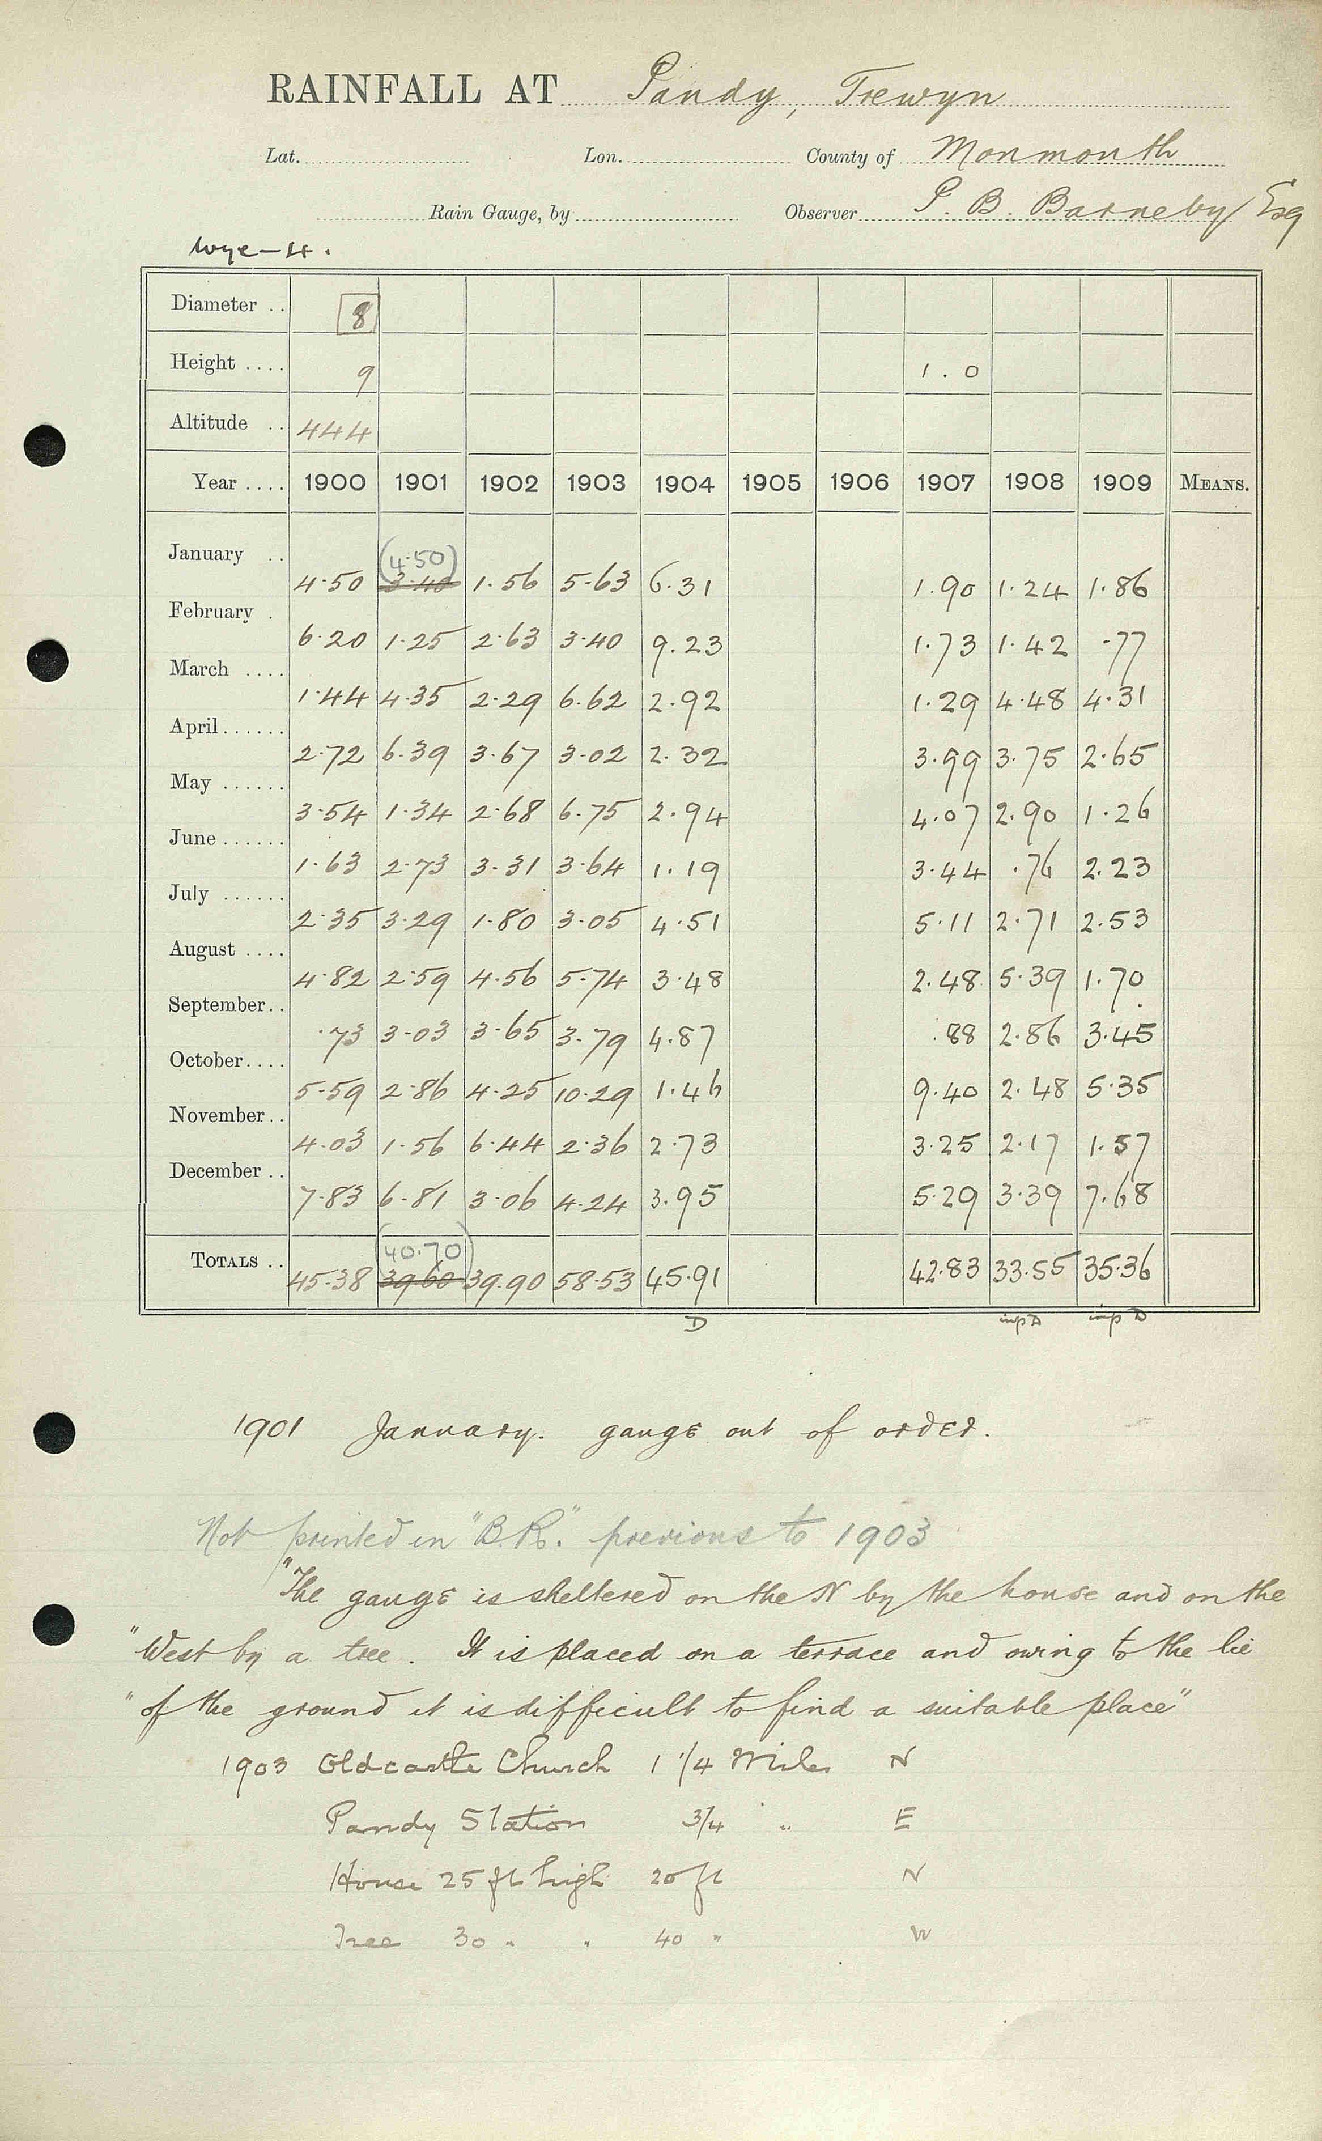 RAINFALL AT Pandy, Trewyn
Lat. Lon. County of Monmouth
Rain Gauge, by Observer P. B. Barneby Esq
Wye-4.
Diameter .. 8
Height .... 9 1.0
Altitude .. 444
Year .... 1900 1901 1902 1903 1904 1905 1906 1907 1908 1909 MEANS.
(4.50)
January .. 4.50 3.40 1.56 5.63 6.31 1.90 1.24 1.86
February . 6.20 1.25 2.63 3.40 9.23 1.73 1.42 .77
March .... 1.44 4.35 2.29 6.62 2.92 1.29 4.48 4.31
April ...... 2.72 6.39 3.67 3.02 2.32 3.99 3.75 2.65
May ...... 3.54 1.34 2.68 6.75 2.94 4.07 2.90 1.26
June ...... 1.63 2.73 3.31 3.64 1.19 3.44 .76 2.23
July ...... 2.35 3.29 1.80 3.05 4.51 5.11 2.71 2.53
August .... 4.82 2.59 4.56 5.74 3.48 2.48 5.39 1.70
September.. .73 3.03 3.65 3.79 4.87 .88 2.86 3.45
October.... 5.59 2.86 4.25 10.29 1.46 9.40 2.48 5.35
November.. 4.03 1.56 6.44 2.36 2.73 3.25 2.17 1.57
December .. 7.83 6.81 3.06 4.24 3.95 5.29 3.39 7.68
(40.70)
TOTALS .. 45.38 39.60 39.90 58.53 45.91 42.83 33.55 35.36
D imp D imp D
1901 January. gauge out of order.
Not printed in "B.R." previous to 1903
"The gauge is sheltered on the N by the house and on the
"West by a tree. It is placed on a terrace and owing to the lie
"of the ground it is difficult to find a suitable place"
1903 Oldcastle Church 1 1/4 Miles N
Pandy Station 3/4 " E
House 25 ft high 20 ft N
Tree 30 " " 40 " W